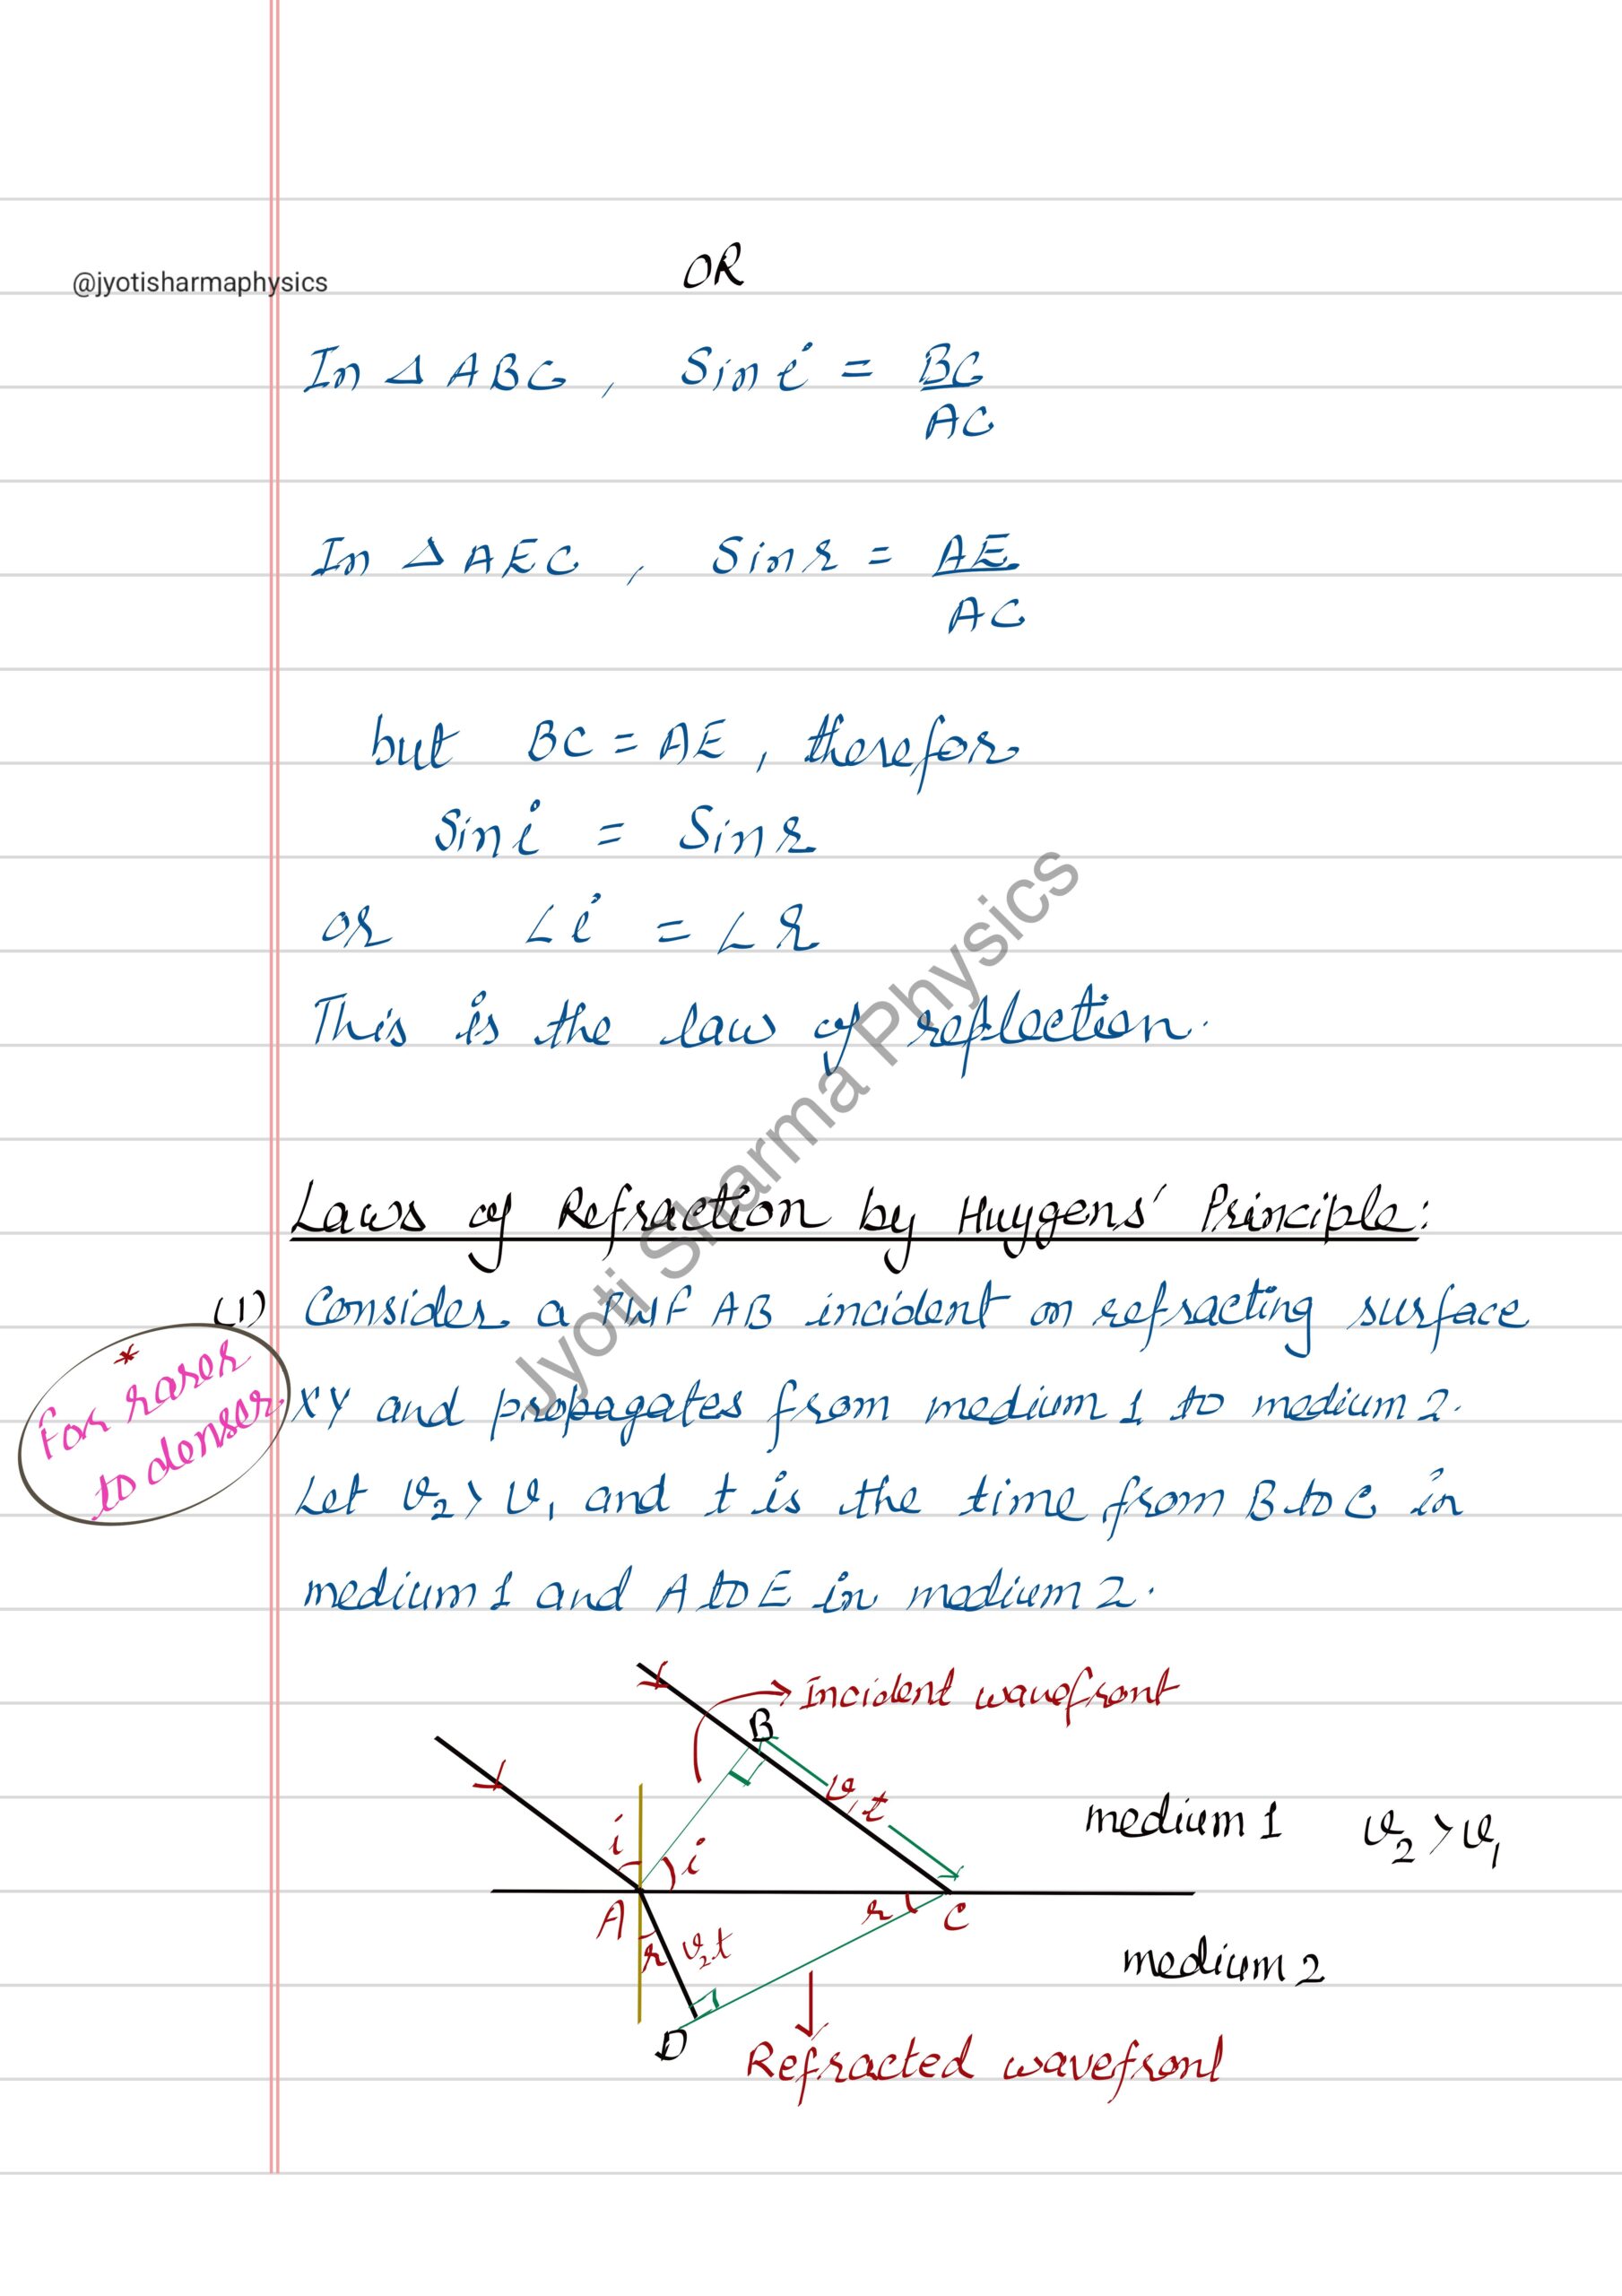 OR
@jyotisharmaphysics
In Δ ABC, Sin i = BC/AC
In Δ AEC, Sin r = AE/AC
but BC = AE, therefor
Sin i = Sin r
or ∠i = ∠r
This is the law of reflection.
Jyoti Sharma Physics
Laws of Refraction by Huygens' Principle:
(1) Consider a PWF AB incident on refracting surface
XY and propagates from medium 1 to medium 2.
Let v₂ > v₁ and t is the time from B to C in
medium 1 and A to E in medium 2.
* for rarer
to denser
Incident wavefront
B
v₁t
medium 1 v₂ > v₁
i
i
A
r
C
r
v₂t
medium 2
D
Refracted wavefront